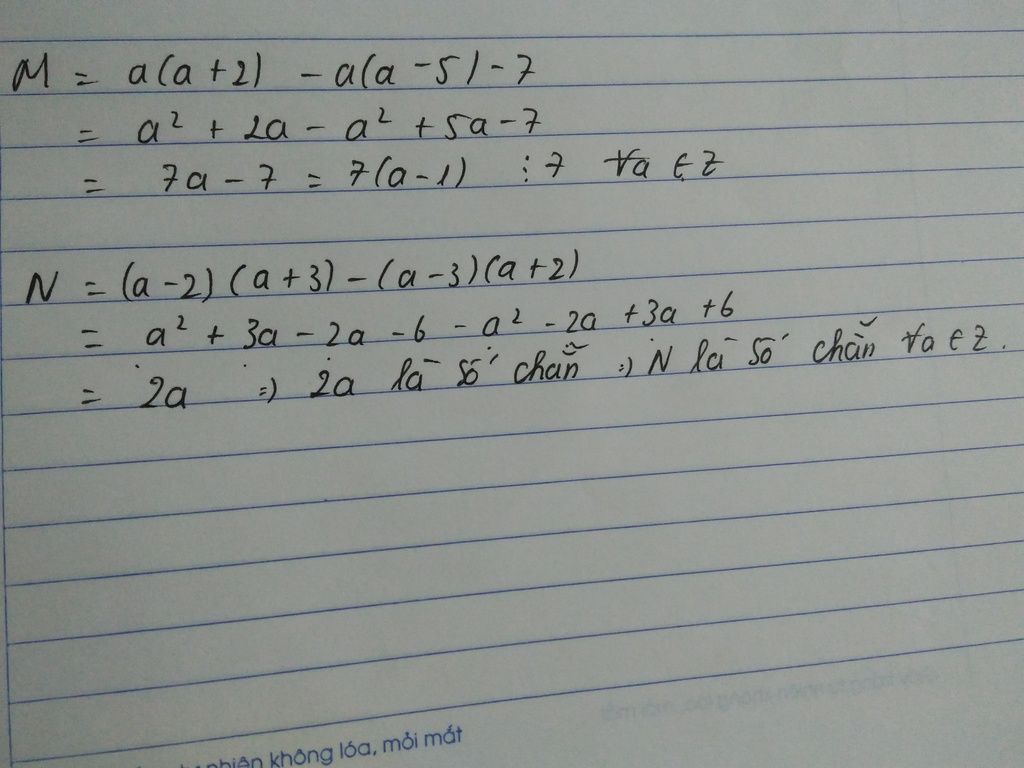 M = a(a+2) - a(a-5) - 7
= a² + 2a - a² + 5a - 7
= 7a - 7 = 7(a-1) ⋮ 7 ∀a ∈ Z
N = (a-2)(a+3) - (a-3)(a+2)
= a² + 3a - 2a - 6 - a² - 2a + 3a + 6
= 2a => 2a là số chẵn => N là số chẵn ∀a ∈ Z.
nhiên không lóa, mỏi mắt